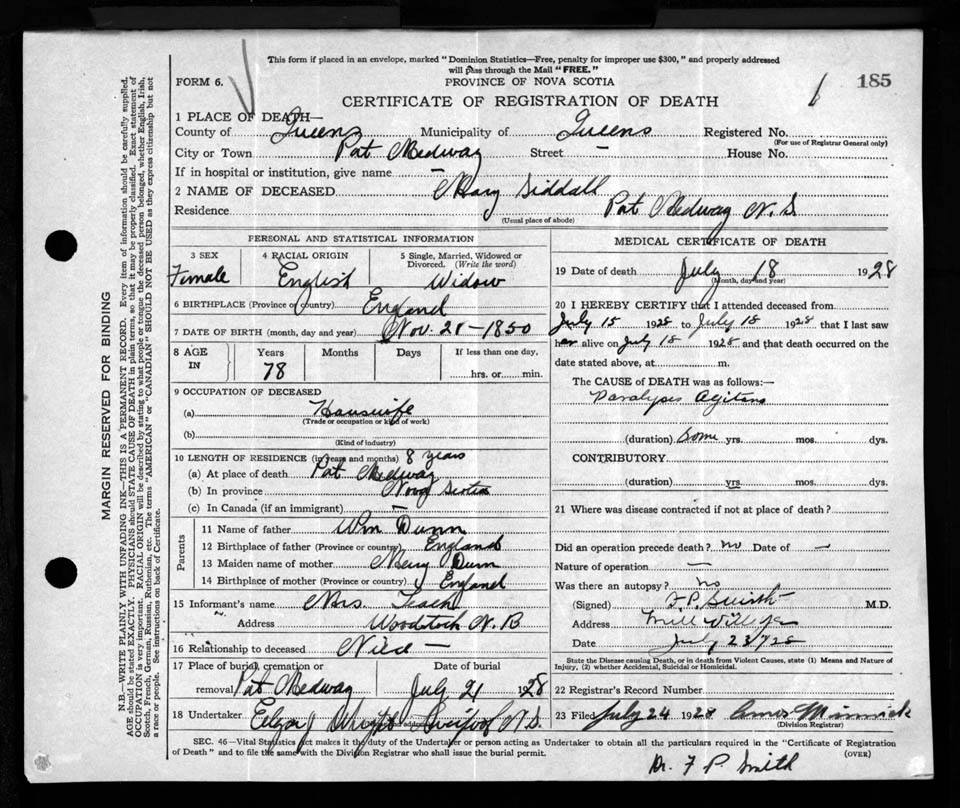 This form if placed in an envelope, marked "Dominion Statistics—Free, penalty for improper use $300," and properly addressed
will pass through the Mail "FREE."
FORM 6.
PROVINCE OF NOVA SCOTIA
185
CERTIFICATE OF REGISTRATION OF DEATH
1 PLACE OF DEATH—
County of Queens Municipality of Queens Registered No.
(For use of Registrar General only)
City or Town Pot Medway Street — House No.
If in hospital or institution, give name —
2 NAME OF DECEASED Mary Siddall
Residence Pot Medway N.S.
(Usual place of abode)
PERSONAL AND STATISTICAL INFORMATION
3 SEX 4 RACIAL ORIGIN 5 Single, Married, Widowed or Divorced. (Write the word)
Female English Widow
6 BIRTHPLACE (Province or Country) England
7 DATE OF BIRTH (month, day and year) Nov. 28-1850
8 AGE IN Years Months Days If less than one day,
78 hrs. or min.
9 OCCUPATION OF DECEASED
(a) Housewife
(Trade or occupation or kind of work)
(b)
(Kind of industry)
10 LENGTH OF RESIDENCE (in years and months) 8 years
(a) At place of death Pot Medway
(b) In province Nova Scotia
(c) In Canada (if an immigrant) —
Parents
11 Name of father Wm Dunn
12 Birthplace of father (Province or country) England
13 Maiden name of mother Mary Dunn
14 Birthplace of mother (Province or country) England
15 Informant's name Mrs. Teach
Address Woodstock N.B
16 Relationship to deceased
17 Place of burial, cremation or Date of burial
removal Pot Medway July 21 1928
18 Undertaker Liverpool N.S.
MEDICAL CERTIFICATE OF DEATH
19 Date of death July 18 1928
(Month, day and year)
20 I HEREBY CERTIFY that I attended deceased from
July 15 1928 to July 18 1928 that I last saw
her alive on July 18 1928 and that death occurred on the
date stated above, at m.
The CAUSE OF DEATH was as follows:—
Paralysis Agitans
(duration) Some yrs. mos. dys.
CONTRIBUTORY
(duration) yrs. mos. dys.
21 Where was disease contracted if not at place of death?
Did an operation precede death? no Date of —
Nature of operation —
Was there an autopsy? no
(Signed) F. P. Smith M.D.
Address Mill Village
Date July 23/28
State the Disease causing Death, or in death from Violent Causes, state (1) Means and Nature of
Injury, (2) whether Accidental, Suicidal or Homicidal.
22 Registrar's Record Number
23 Filed July 24 1928
(Division Registrar)
SEC. 46—Vital Statistics Act makes it the duty of the Undertaker or person acting as Undertaker to obtain all the particulars required in the "Certificate of Registration
of Death" and to file the same with the Division Registrar who shall issue the burial permit.
(OVER)
Dr. F P. Smith
MARGIN RESERVED FOR BINDING
N.B.—WRITE PLAINLY WITH UNFADING INK—THIS IS A PERMANENT RECORD. Every item of information should be carefully supplied.
AGE should be stated EXACTLY. PHYSICIANS should STATE CAUSE OF DEATH in plain terms, so that it may be properly classified. Exact statement of
OCCUPATION is very important. RACIAL ORIGIN will be described by stating to what people or tongue the deceased person belonged, whether English, Irish,
Scotch, French, German, Russian, Ruthenian, etc. The terms "AMERICAN" or "CANADIAN" SHOULD NOT BE USED as they express citizenship but not
a race or people. See instructions on back of Certificate.